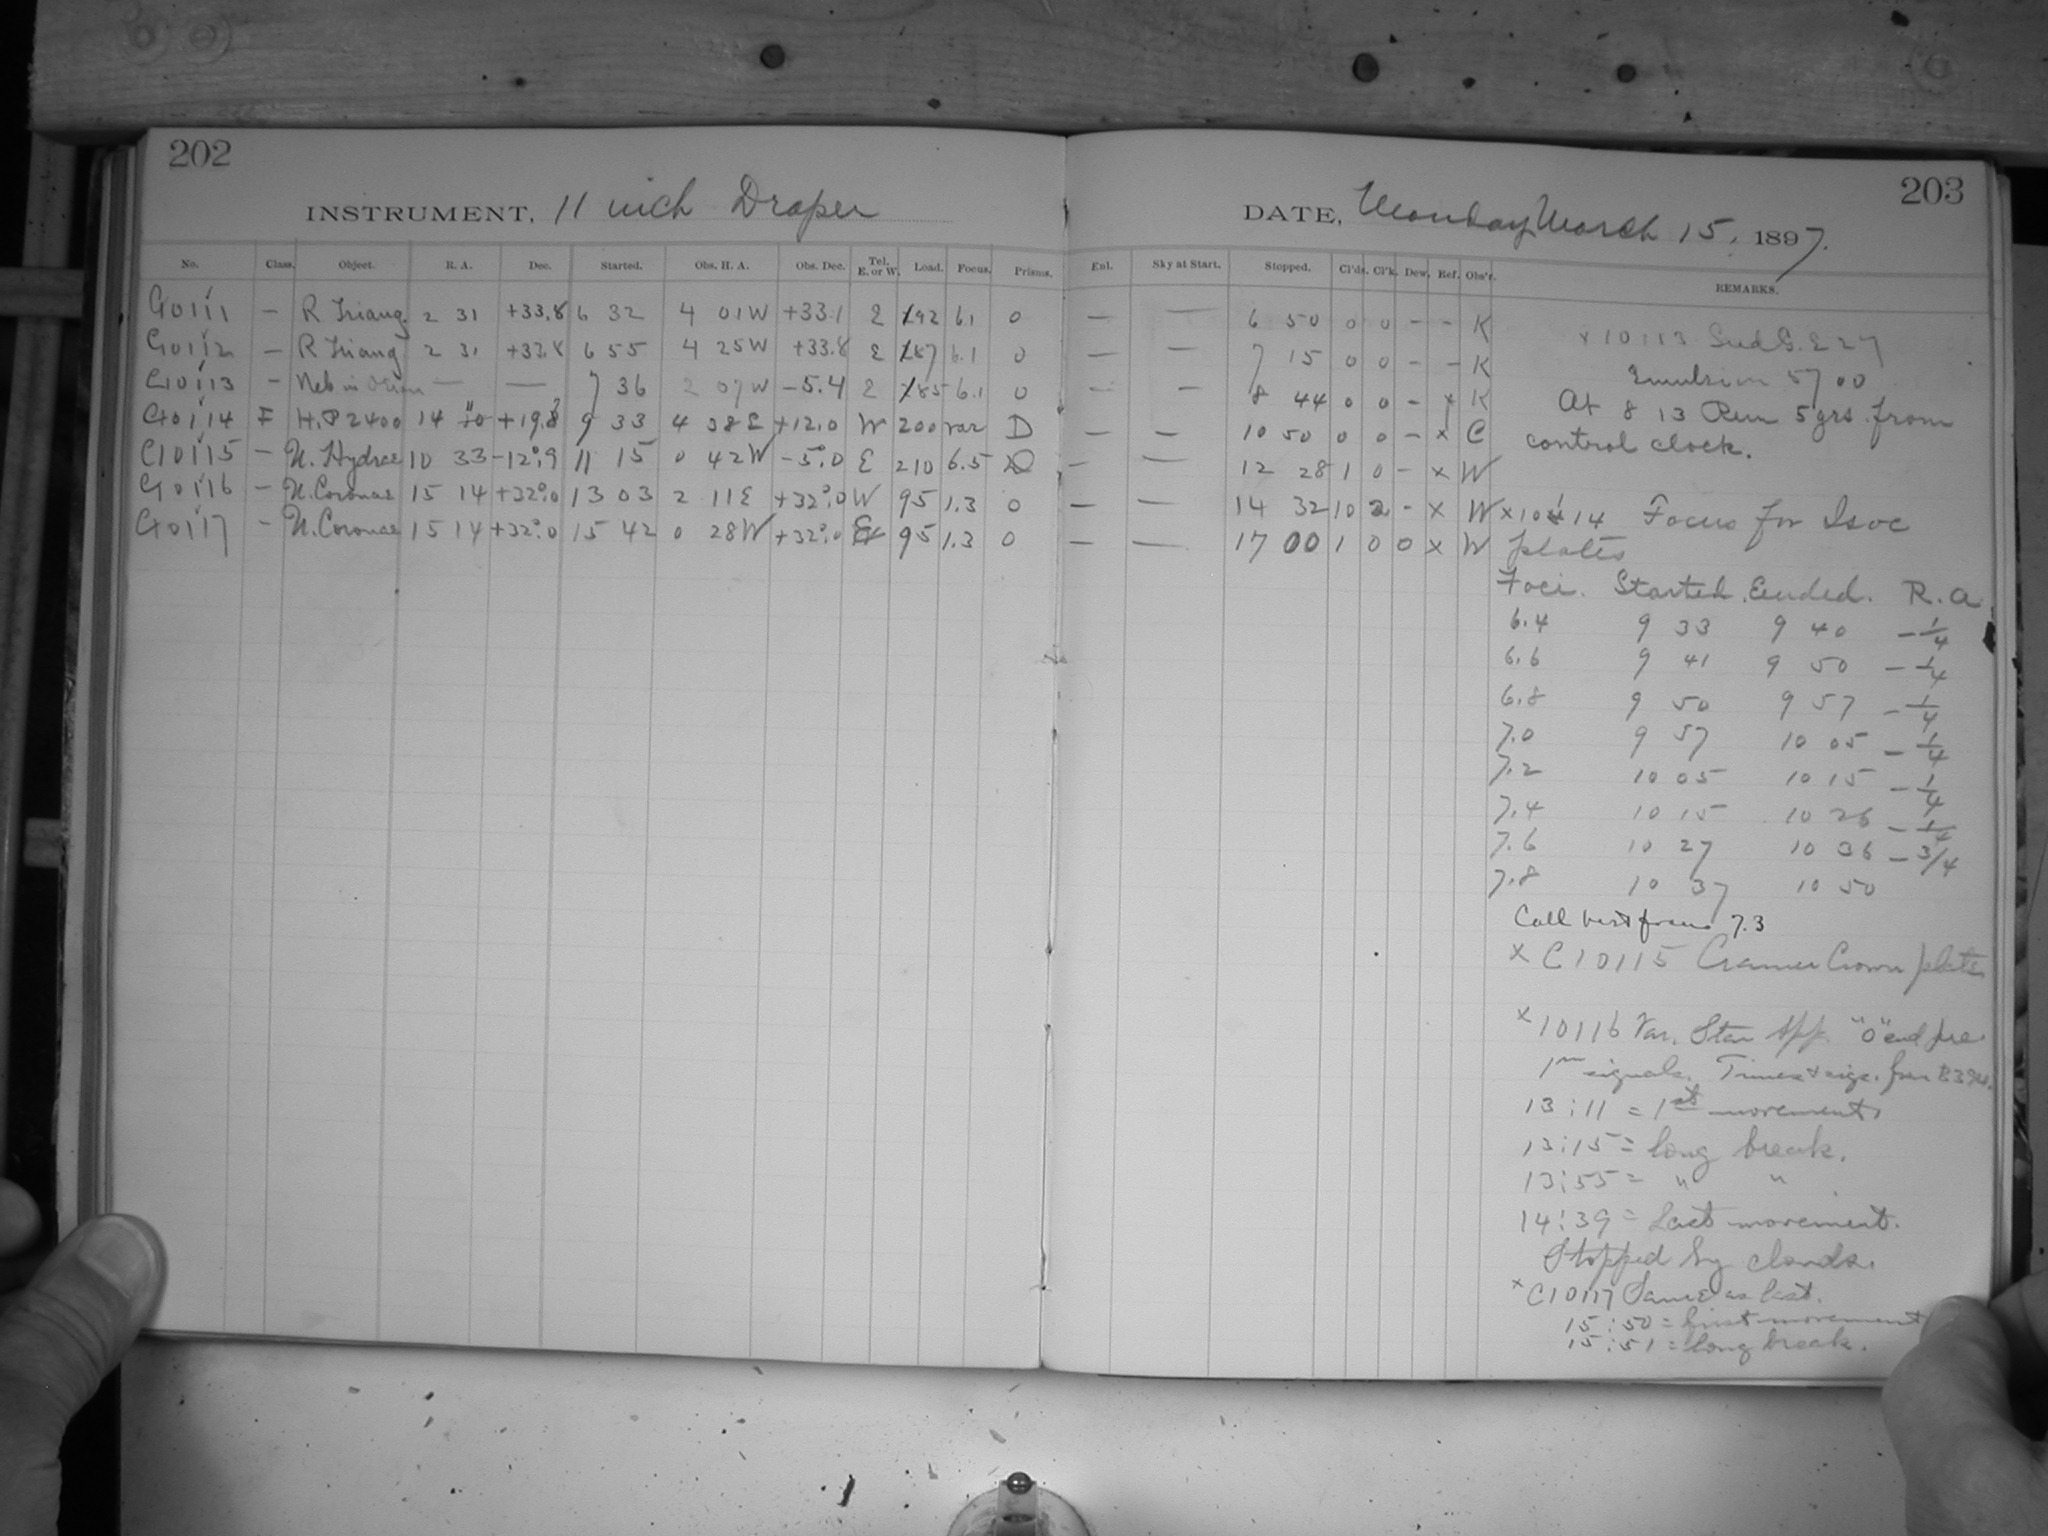 202
INSTRUMENT, 11 inch Draper
No. Class. Object. R. A. Dec. Started. Obs. H. A. Obs. Dec. Tel. E. or W. Load. Focus. Prisms.
C10111 – R Triang. 2 31 +33.8 6 32 4 01 W +33.1 E 192 6.1 0
C10112 – R Triang 2 31 +33.8 6 55 4 25 W +33.8 E 187 6.1 0
C10113 – Neb in Orion — — 7 36 2 07 W -5.4 E 185 6.1 0
C10114 F H.P 2400 14 10 +19.8 9 33 4 38 E +12.0 W 200 var D
C10115 – N. Hydrae 10 33 -12°.9 11 15 0 42 W -5.0 E 210 6.5 D
C10116 – U. Coronae 15 14 +32°.0 13 03 2 11 E +32°.0 W 95 1.3 0
C10117 – U. Coronae 15 14 +32°.0 15 42 0 28 W +32°.0 E 95 1.3 0
203
DATE, Monday March 15, 1897.
Enl. Sky at Start. Stopped. Cl'ds. Cl'k. Dew. Ref. Obs'r. REMARKS.
— — 6 50 0 0 – – K
— — 7 15 0 0 – – K
— — 8 44 0 0 – x K
— — 10 50 0 0 – x C
— — 12 28 1 0 – x W
— — 14 32 10 2 – x W
— — 17 00 1 0 0 x W
x 10113 Seed G. E 27
Emulsion 5700
At 8 13 Run 5 grs. from
control clock.
x 10114 Focus for Isoc
plates
Foci. Started. Ended. R. A.
6.4 9 33 9 40 – 1/4
6.6 9 41 9 50 – 1/4
6.8 9 50 9 57 – 1/4
7.0 9 57 10 05 – 1/4
7.2 10 05 10 15 – 1/4
7.4 10 15 10 26 – 1/4
7.6 10 27 10 36 – 3/4
7.8 10 37 10 50
Call best focus 7.3
x C10115 Cramer Crown plate
x 10116 Var. Star App. "0" end pre
1m signals. Times & sigs. from
13:11 = 1st movement.
13:15 = long break.
13:55 = " "
14:39 = Last movement.
Stopped by clouds.
x C10117 Same as last.
15:50 = first movement
15:51 = long break.